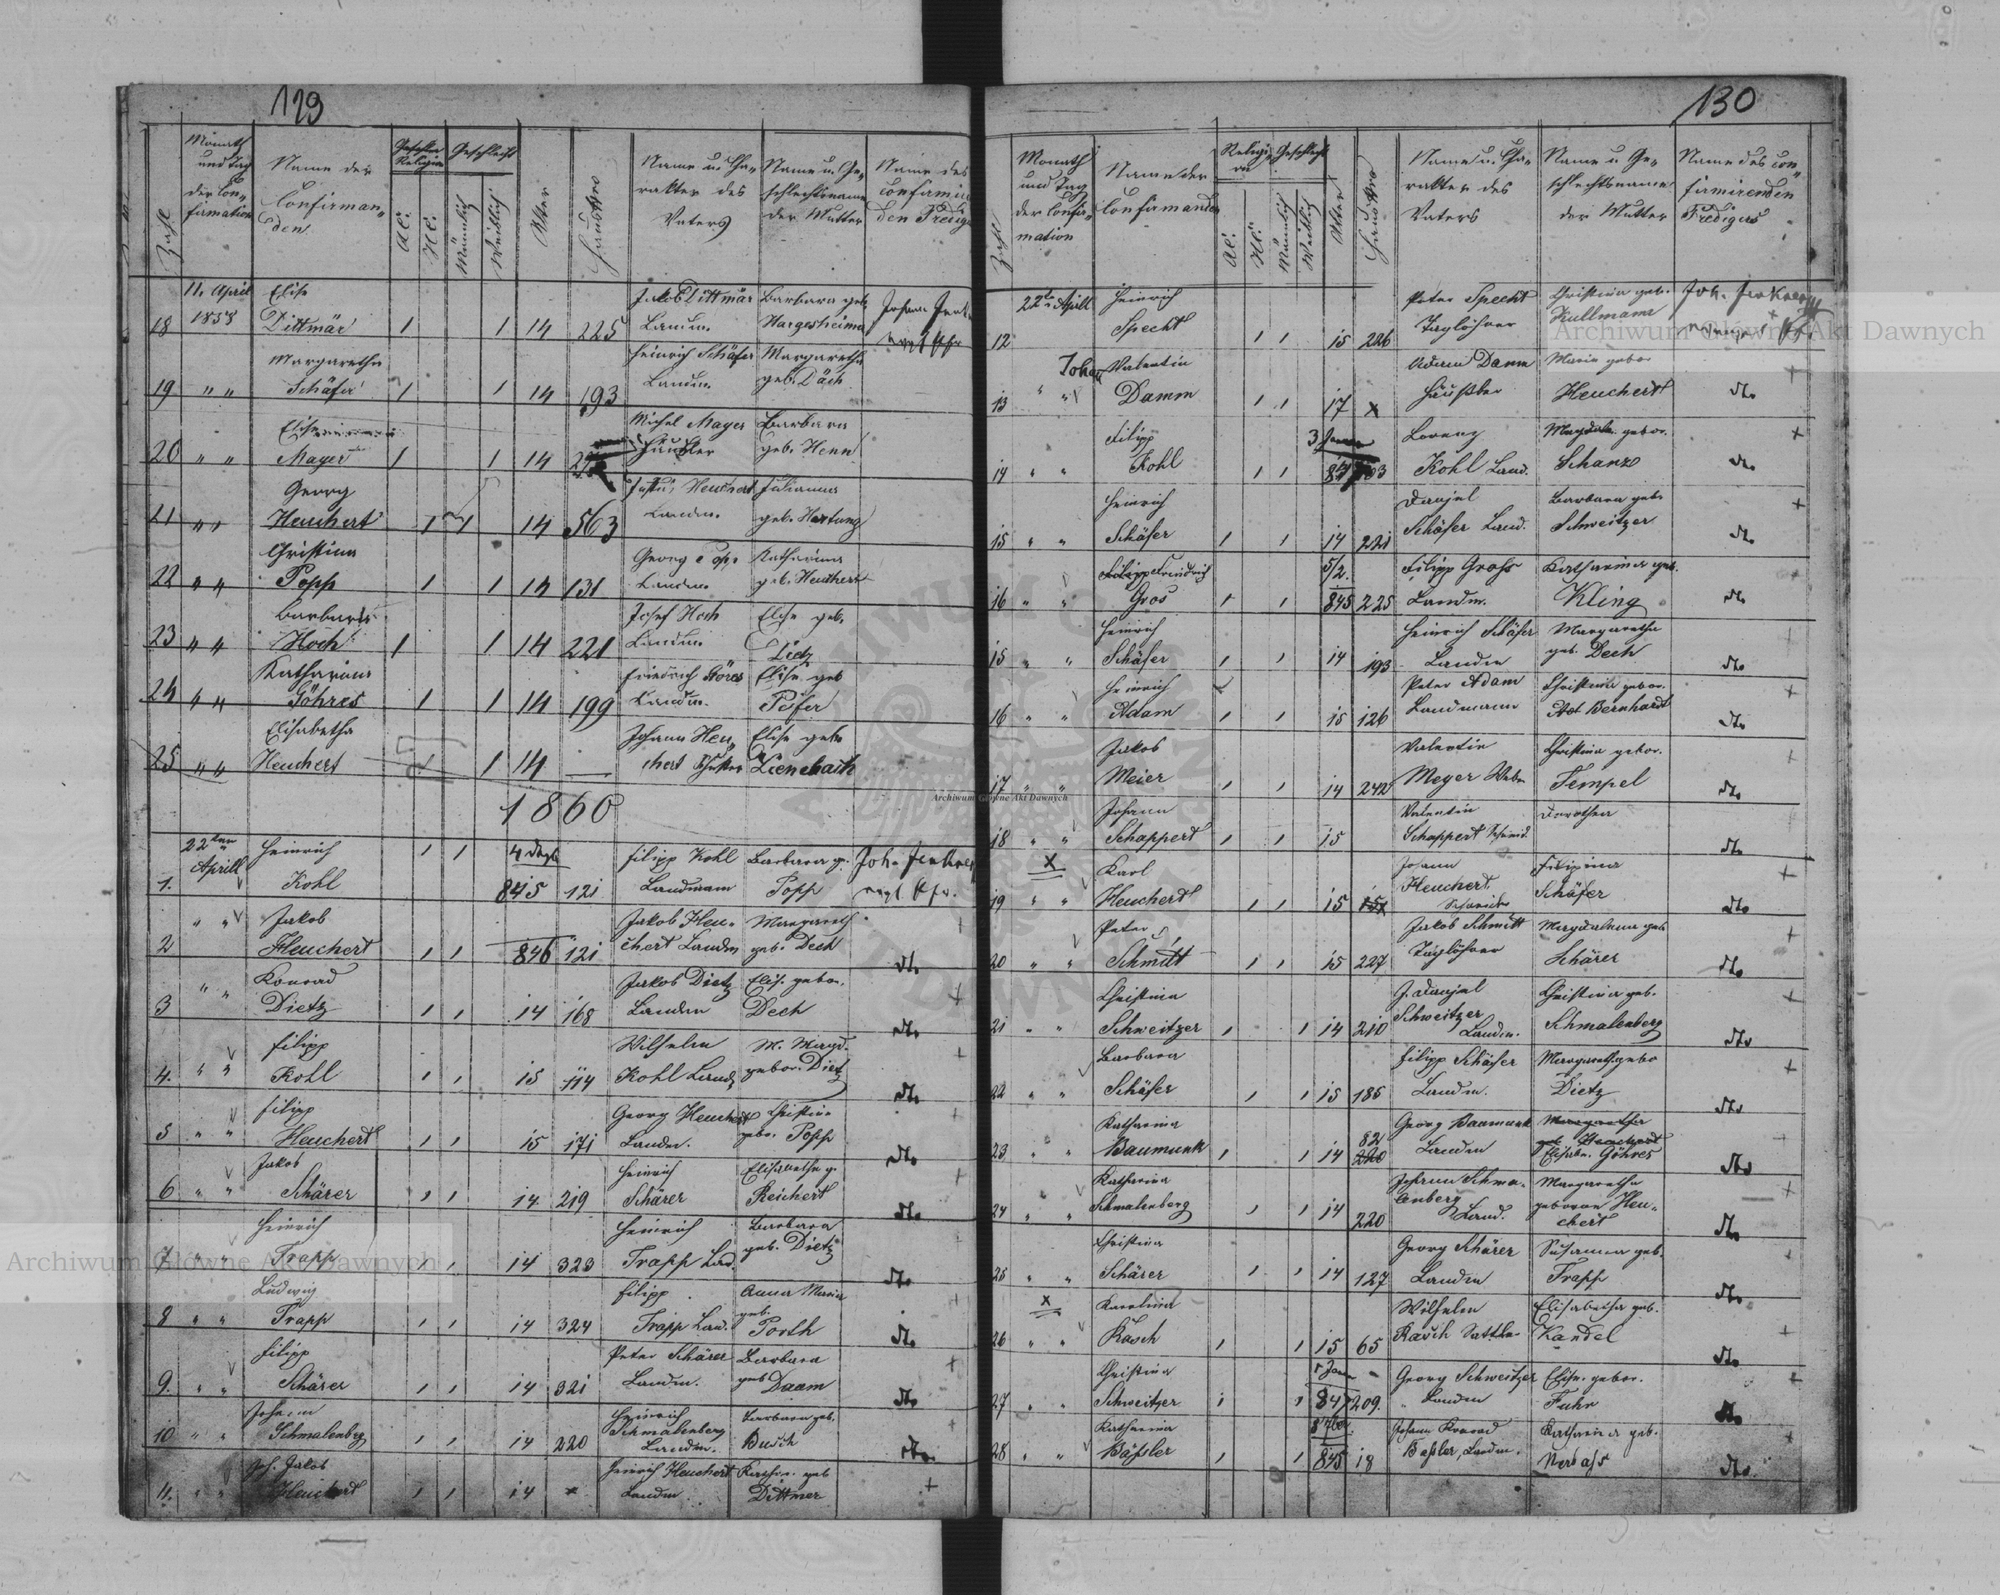 129
Monath und Tag der Confirmation
Name der Confirmanden
Religion
Geschlecht
A.C.
H.C.
Männlich
Weiblich
Alter
Haus Nro
Zahl
Name u. Charakter des Vaters
Name u. Geschlechtsname der Mutter
Name des confirmirenden Predigers
18 11. April 1858 Elise Dittmär 1 1 14 225 Jakob Dittmär Landm. Barbara geb. Hargesheimer
19 " " Margaretha Schäfer 1 1 14 193 Heinrich Schäfer Landm. Margaretha geb. Däch
20 " " Elise Mayer 1 1 14 Michel Mayer Häusler Barbara geb. Henn
21 " " Georg Heuchert 1 1 14 563 Heuchert Landm. Julianna geb. Hartung
22 " " Christina Popp 1 1 14 131 Georg Popp Landm. Katharina geb. Heuchert
23 " " Barbara Hoch 1 1 14 221 Josef Hoch Landm. Elise geb. Dietz
24 " " Katharina Göhres 1 1 14 199 Friedrich Göres Landm. Elise geb
25 " " Elisabetha Heuchert 1 14 — Johann Heuchert Elise geb.
1860
1. 22ten Aprill Heinrich Kohl 1 1 845 121 Filipp Kohl Landmann Barbara g. Popp
2 " " Jakob Heuchert 1 1 846 121 Jakob Heuchert Landm Margareth geb. Dech dto
3 " " Konrad Dietz 1 1 14 168 Jakob Dietz Landm Elis. gebor. Dech dto
4. " " Filipp Kohl 1 1 15 114 Wilhelm Kohl Land. M. Magd. gebor. Dietz dto
5 " " Filipp Heuchert 1 1 15 171 Georg Heuchert Landm. Christina gebr. Popp dto
6 " " Jakob Schärer 1 1 14. 219 Heinrich Schärer Elisabetha g. Reichert dto
7 " " Heinrich Trapp 1 1 14 323 Heinrich Trapp Lad. Barbara geb. Dietz dto
8 " " Ludwig Trapp 1 1 14 324 Filipp Trapp Land. Anna Maria geb. Porth dto
9. " " Filipp Schärer 1 1 14 321 Peter Schärer Landm. Barbara geb Daam dto
10 " " Johann Schmalenberg 1 1 14 220 Heinrich Schmalenberg Landm. Barbara geb. Busch dto
11. " " Joh. Jakob Heuchert 1 1 14 Heinrich Heuchert Landm. Kathr. geb Dittmer
130
Zahl
Monath und Tag der Confirmation
Name der Confirmanden
Religion
Geschlecht
A.C.
H.C.
Männlich
Weiblich
Alter
Haus Nro
Name u. Charakter des Vaters
Name u Geschlechtsname der Mutter
Name des confirmirenden Predigers
12 22t. Aprill Heinrich Specht 1 1 15 226 Peter Specht Taglöhner Christina geb. Kullmann
13 " " Johann Valentin Damm 1 1 17 x Adam Damm Häußler Maria gebor Heuchert dto
14 " " Filipp Kohl 1 1 Lorenz Kohl Land. Magdal. gebor. Schanz dto
15 " " Heinrich Schäfer 1 1 14 221 Danjel Schäfer Land. Barbara geb. Schweitzer dto
16 " " Filipp Friedrich Gros 1 1 5/2. 845 225 Filipp Gross Landm. Katharina geb. Kling dto
15 " " Heinrich Schäfer 1 1 14 193 Heinrich Schäfer Landm Margaretha geb. Dech dto
16 " " Heinrich Adam 1 1 15 126 Peter Adam Landmann Christina gebor. Bernhardt dto
17 " " Jakob Meier 1 1 14 242 Valentin Meyer Weber Christina gebor. Tempel dto
18 " " Johann Schappert 1 1 15 Valentin Schappert Dorothea dto
19 " " Karl Heuchert 1 1 15 Johann Heuchert Filipina Schäfer dto
20 " " Peter Schmitt 1 1 15 227 Jakob Schmitt Taglöhner Magdalena geb Schärer dto
21 " " Christina Schweitzer 1 1 14 210 J. Danjel Schweitzer Landm. Christina geb. Schmalenberg dto
22 " " Barbara Schäfer 1 1 15 185 Filipp Schäfer Landm. Margareth gebo Dietz dto
23 " " Katharina Baumunk 1 1 14 82 220 Georg Baumunk Landm Margaretha geb. Heuchert Elisabe. Göhres dto
24 " " Katharina Schmalenberg 1 1 14 220 Johann Schmalenberg Land. Margaretha geboren Heuchert dto
25 " " Christina Schärer 1 1 14 127 Georg Schärer Landm Susanna geb. Trapp dto
26 " " Karolina Rasch 1 1 15 65 Wilhelm Rasch Sattler Elisabetha geb. Kandel dto
27 " " Christina Schweitzer 1 1 847 209. Georg Schweitzer Landm Elise. gebor. Fuhr dto
28 " " Katharina Bäßler 1 1 845 18 Johann Konrad Baßler, Landm. Katharina geb. dto
Archiwum Główne Akt Dawnych
Archiwum Główne Akt Dawnych
Archiwum Główne Akt Dawnych